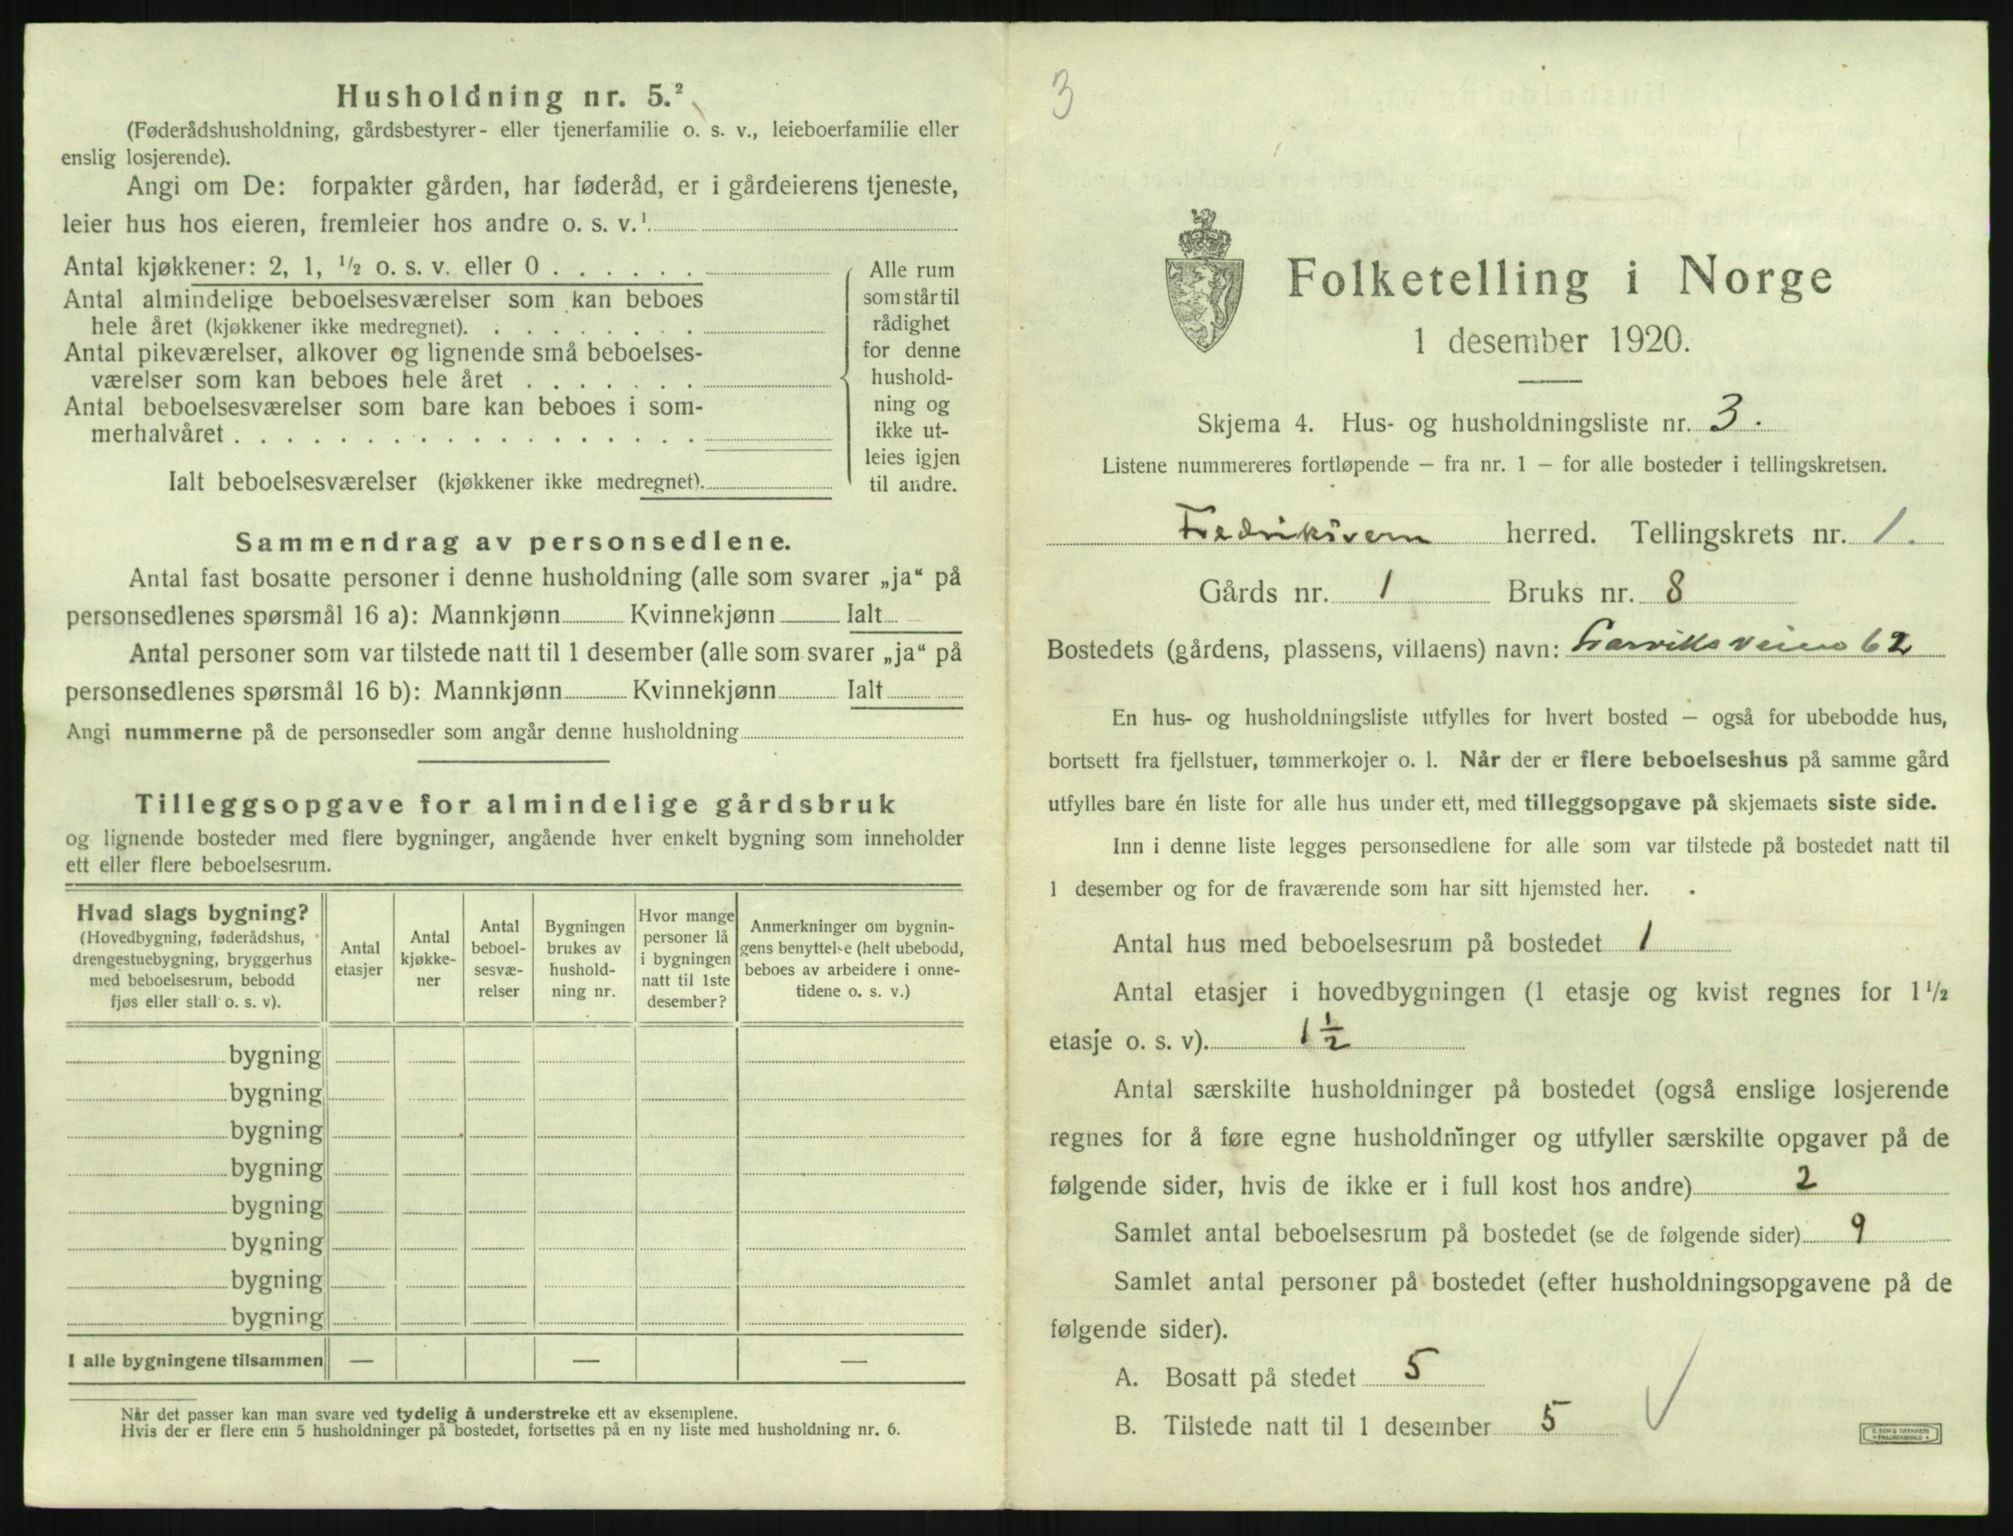 Husholdning nr. 5.²
(Føderådshusholdning, gårdsbestyrer- eller tjenerfamilie o. s. v., leieboerfamilie eller
enslig losjerende).
Angi om De: forpakter gården, har føderåd, er i gårdeierens tjeneste,
leier hus hos eieren, fremleier hos andre o. s. v.¹
Antal kjøkkener: 2, 1, ½ o. s. v. eller 0
Antal almindelige beboelsesværelser som kan beboes
hele året (kjøkkener ikke medregnet).
Antal pikeværelser, alkover og lignende små beboelses-
værelser som kan beboes hele året
Antal beboelsesværelser som bare kan beboes i som-
merhalvåret
Ialt beboelsesværelser (kjøkkener ikke medregnet).
Alle rum
som står til
rådighet
for denne
hushold-
ning og
ikke ut-
leies igjen
til andre.
Sammendrag av personsedlene.
Antal fast bosatte personer i denne husholdning (alle som svarer „ja“ på
personsedlenes spørsmål 16 a): Mannkjønn Kvinnekjønn Ialt
Antal personer som var tilstede natt til 1 desember (alle som svarer „ja“ på
personsedlenes spørsmål 16 b): Mannkjønn Kvinnekjønn Ialt
Angi nummerne på de personsedler som angår denne husholdning
Tilleggsopgave for almindelige gårdsbruk
og lignende bosteder med flere bygninger, angående hver enkelt bygning som inneholder
ett eller flere beboelsesrum.
Hvad slags bygning?
(Hovedbygning, føderådshus,
drengestuebygning, bryggerhus
med beboelsesrum, bebodd
fjøs eller stall o. s. v).
Antal
etasjer
Antal
kjøkke-
ner
Antal
beboel-
sesvæ-
relser
Bygningen
brukes av
hushold-
ning nr.
Hvor mange
personer lå
i bygningen
natt til 1ste
desember?
Anmerkninger om bygnin-
gens benyttelse (helt ubebodd,
beboes av arbeidere i onne-
tidene o. s. v.)
bygning
bygning
bygning
bygning
bygning
bygning
bygning
bygning
I alle bygningene tilsammen — — —
Når det passer kan man svare ved tydelig å understreke ett av eksemplene.
Hvis der er flere enn 5 husholdninger på bostedet, fortsettes på en ny liste med husholdning nr. 6.
3
Folketelling i Norge
1 desember 1920.
Skjema 4. Hus- og husholdningsliste nr. 3.
Listene nummereres fortløpende – fra nr. 1 – for alle bosteder i tellingskretsen.
Fredriksvern herred. Tellingskrets nr. 1.
Gårds nr. 1 Bruks nr. 8
Bostedets (gårdens, plassens, villaens) navn: Larviksveien 62
En hus- og husholdningsliste utfylles for hvert bosted – også for ubebodde hus,
bortsett fra fjellstuer, tømmerkojer o. l. Når der er flere beboelseshus på samme gård
utfylles bare én liste for alle hus under ett, med tilleggsopgave på skjemaets siste side.
Inn i denne liste legges personsedlene for alle som var tilstede på bostedet natt til
1 desember og for de fraværende som har sitt hjemsted her.
Antal hus med beboelsesrum på bostedet 1
Antal etasjer i hovedbygningen (1 etasje og kvist regnes for 1½
etasje o. s. v). 1½
Antal særskilte husholdninger på bostedet (også enslige losjerende
regnes for å føre egne husholdninger og utfyller særskilte opgaver på de
følgende sider, hvis de ikke er i full kost hos andre) 2
Samlet antal beboelsesrum på bostedet (se de følgende sider) 9
Samlet antal personer på bostedet (efter husholdningsopgavene på de
følgende sider).
A. Bosatt på stedet 5
B. Tilstede natt til 1 desember 5